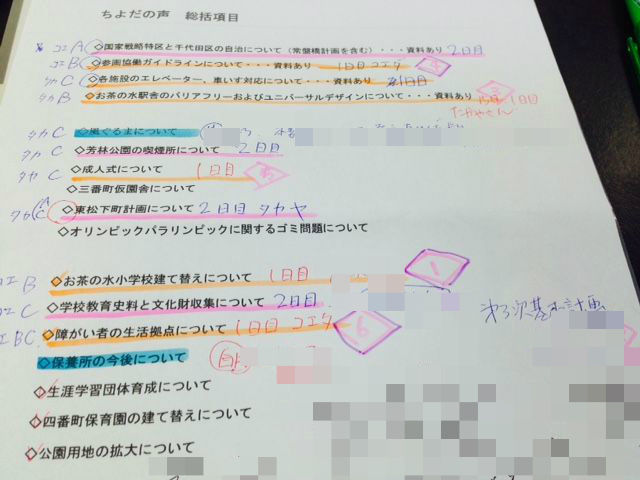 ちよだの声 総括項目
コエA ◇国家戦略特区と千代田区の自治について（常盤橋計画を含む）・・・資料あり 2日目
コエB ◇参画協働ガイドラインについて・・・資料あり 1日目 コエダ
タカC ◇各施設のエレベーター、車いす対応について・・・資料あり 1日目
タカB ◇お茶の水駅舎のバリアフリーおよびユニバーサルデザインについて・・・資料あり 1日目
たかやさん
タカC ◇風ぐるまについて
タカC ◇芳林公園の喫煙所について 2日目
タカC ◇成人式について 1日目
◇三番町仮園舎について
タカC ◇東松下町計画について 2日目 タカヤ
◇オリンピックパラリンピックに関するゴミ問題について
コエB ◇お茶の水小学校建て替えについて 1日目 1
コエC ◇学校教育史料と文化財収集について 2日目
コエBC ◇障がい者の生活拠点について 1日目 コエダ 6
第3次基本計画
◇保養所の今後について
◇生涯学習団体育成について
◇四番町保育園の建て替えについて
◇公園用地の拡大について